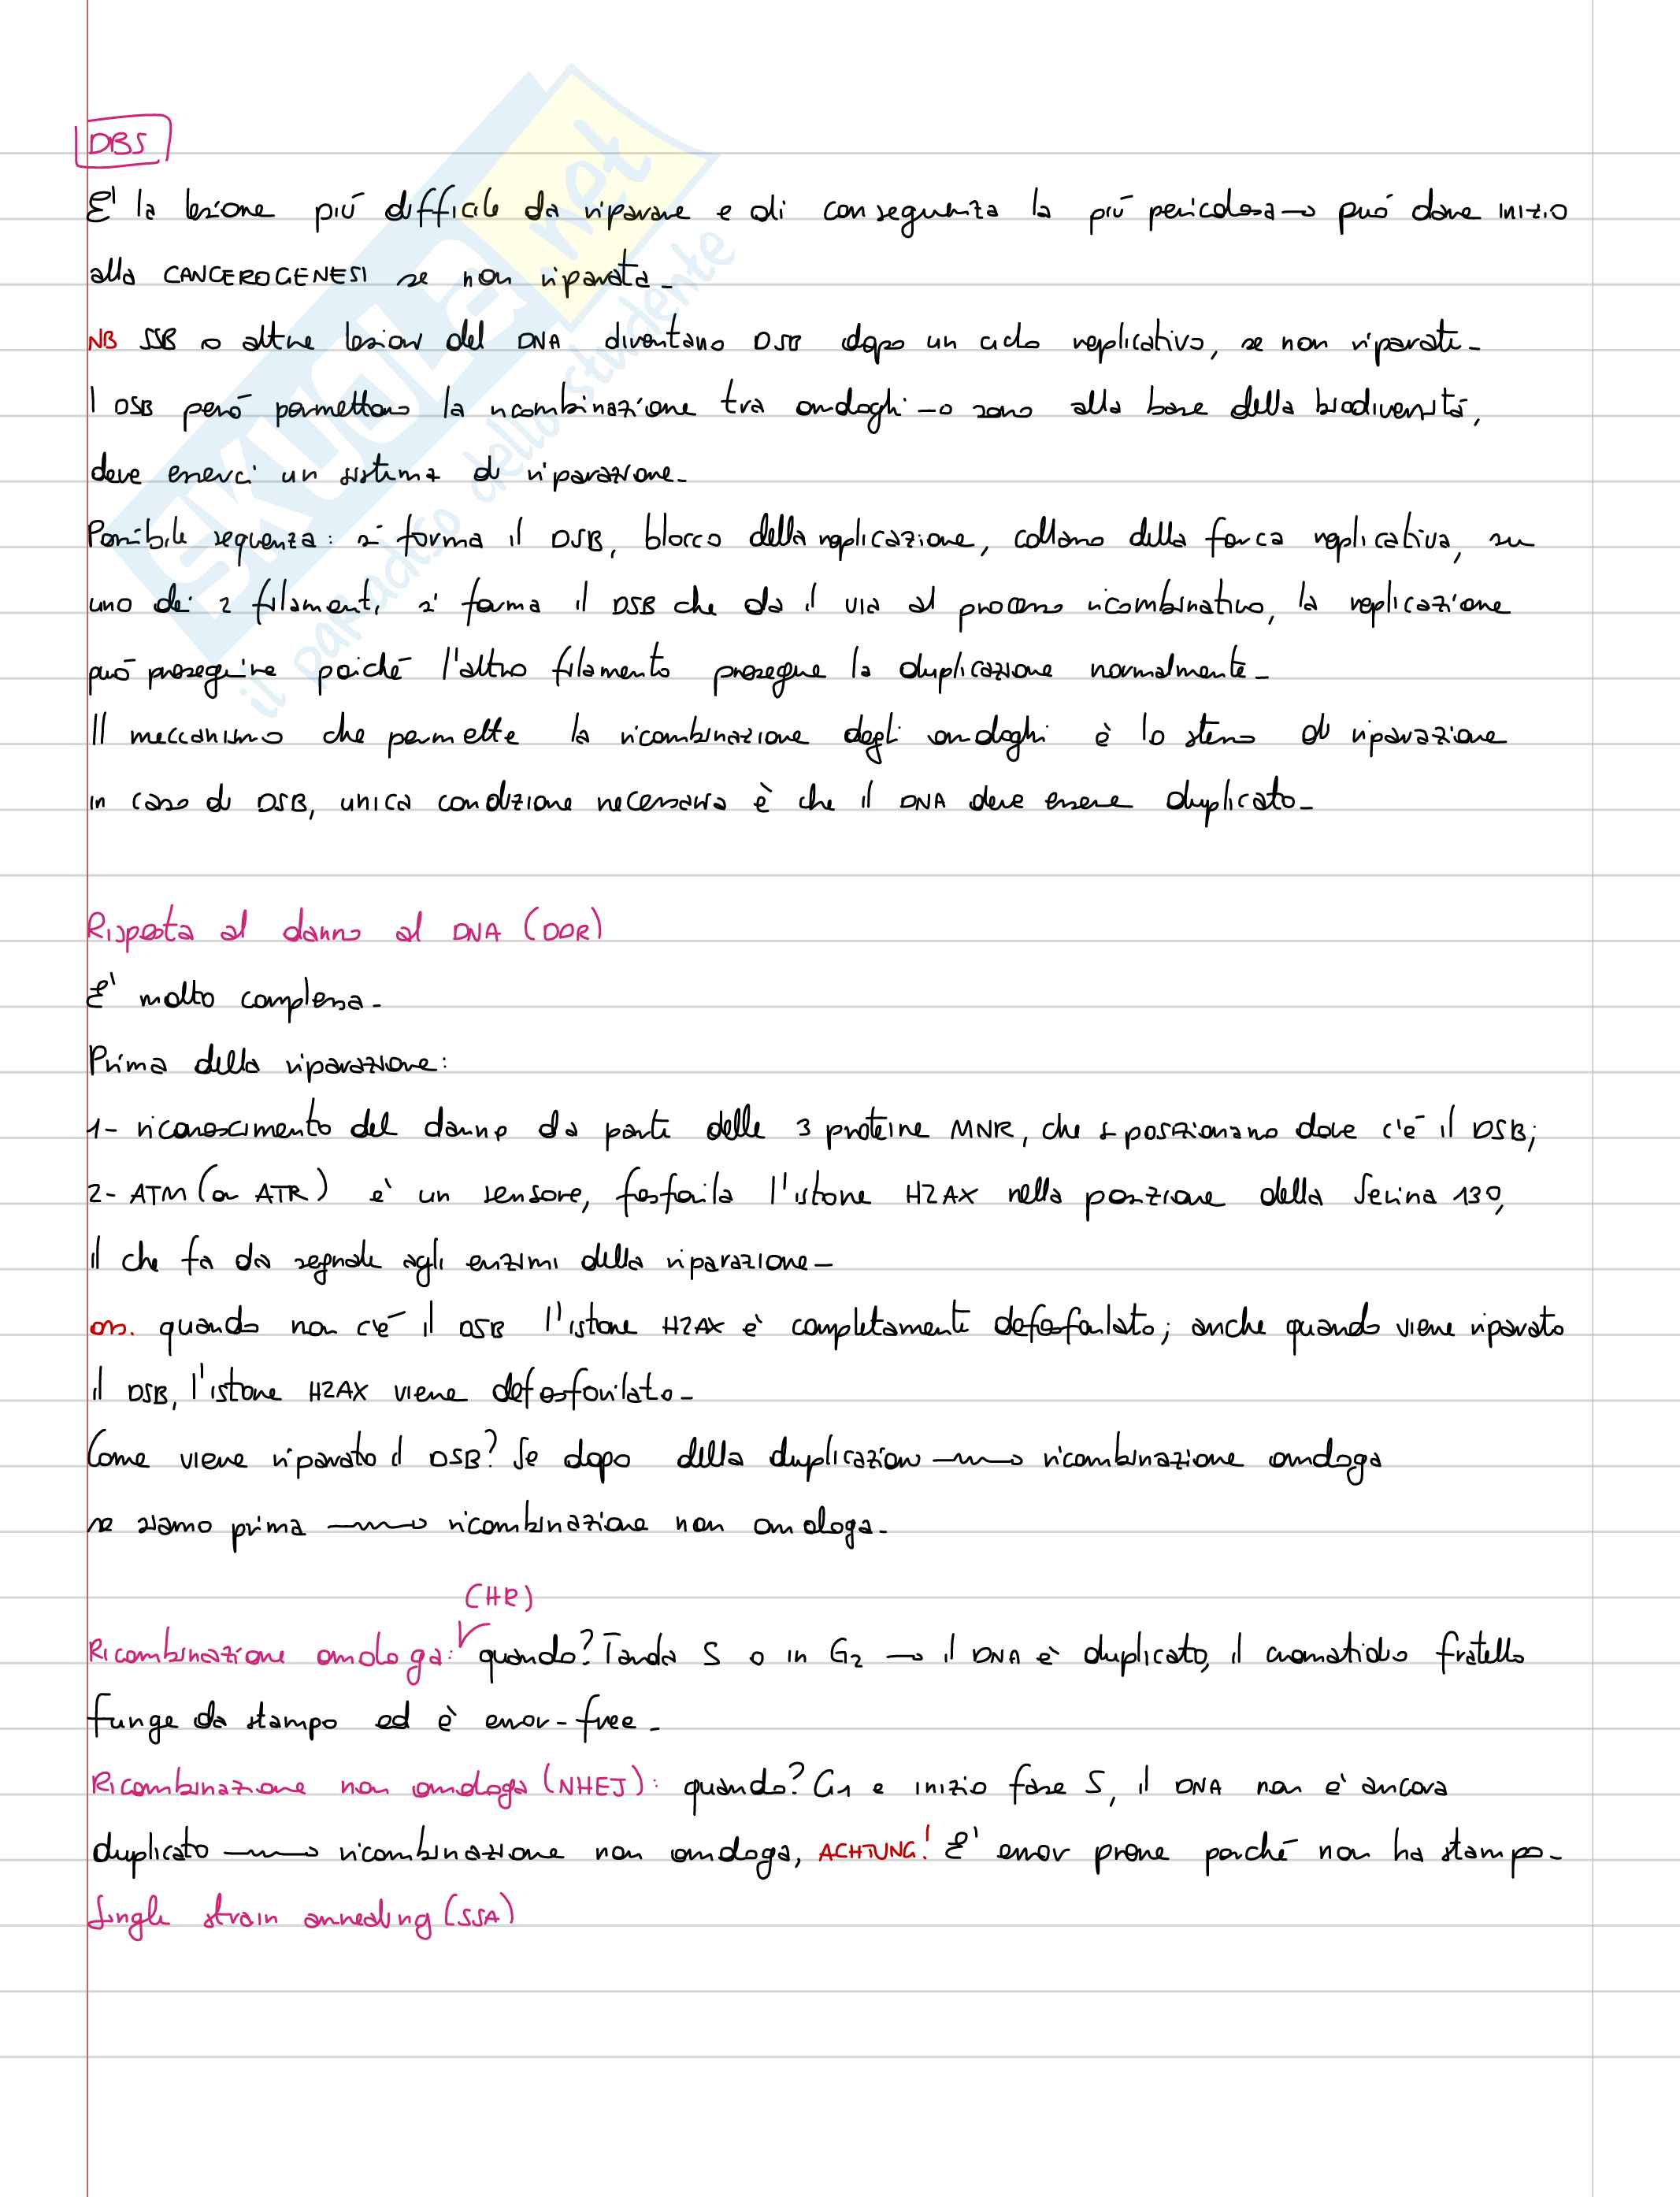 DBS
E' la lesione più difficile da riparare e di conseguenza la più pericolosa → può dare inizio
alla CANCEROGENESI se non riparata_
NB SSB o altre lesioni del DNA diventano DSB dopo un ciclo replicativo, se non riparati_
I DSB però permettono la ricombinazione tra omologhi → sono alla base della biodiversità,
deve esserci un sistema di riparazione_
Possibile sequenza: si forma il DSB, blocco della replicazione, collasso della forca replicativa, su
uno dei 2 filamenti si forma il DSB che da il via al processo ricombinativo, la replicazione
può proseguire poiché l'altro filamento prosegue la duplicazione normalmente_
Il meccanismo che permette la ricombinazione degli omologhi è lo stesso di riparazione
in caso di DSB, unica condizione necessaria è che il DNA deve essere duplicato_
Risposta al danno al DNA (DDR)
E' molto complessa_
Prima della riparazione:
1- riconoscimento del danno da parte delle 3 proteine MNR, che si posizionano dove c'è il DSB;
2- ATM (o ATR) è un sensore, fosforila l'istone H2AX nella posizione della Serina 139,
il che fa da segnale agli enzimi della riparazione_
oss. quando non c'è il DSB l'istone H2AX è completamente defosforilato; anche quando viene riparato
il DSB, l'istone H2AX viene defosforilato_
Come viene riparato il DSB? Se dopo della duplicazion → ricombinazione omologa
se siamo prima → ricombinazione non omologa_
(HR)
Ricombinazione omologa: quando? Tarda S o in G2 → il DNA è duplicato, il cromatidio fratello
funge da stampo ed è error-free_
Ricombinazione non omologa (NHEJ): quando? G1 e inizio fase S, il DNA non è ancora
duplicato → ricombinazione non omologa, ACHTUNG! E' error prone perché non ha stampo_
Single strain annealing (SSA)
SKUOLA.net
il paradiso dello studente